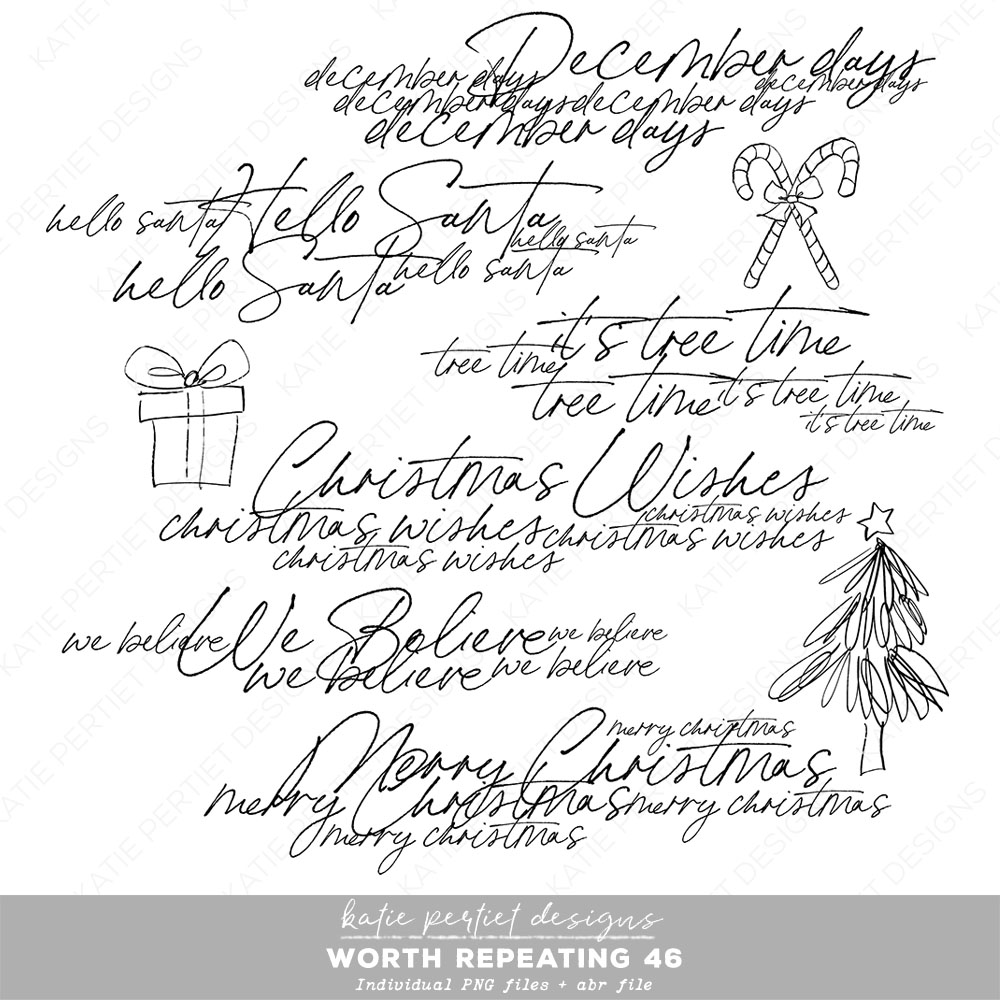 December days
december days december days
december days december days
december days
hello santa Hello Santa
hello santa
hello Santa hello santa
it's tree time
tree time
tree time it's tree time
it's tree time
Christmas Wishes
christmas wishes
christmas wishes christmas wishes
christmas wishes
we believe We Believe we believe
we believe we believe
merry christmas
Merry Christmas
merry Christmas merry christmas
merry christmas
katie pertiet designs
WORTH REPEATING 46
Individual PNG files + abr file
KATIE PERTIET DESIGNS